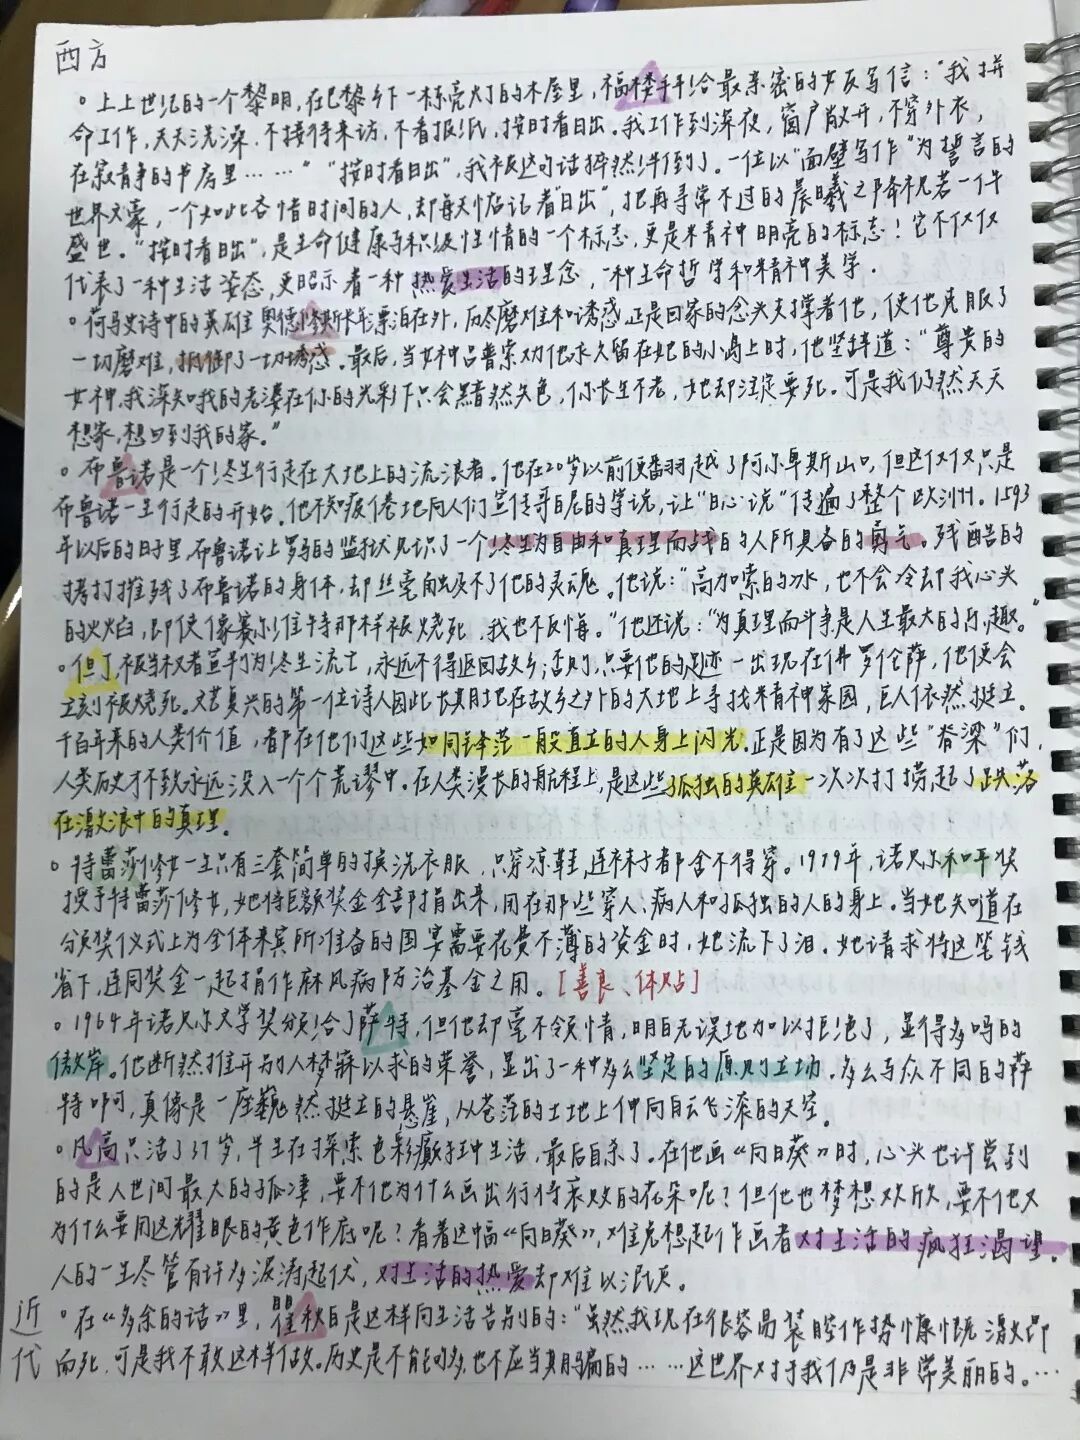 西方
。上上世纪的一个黎明,在巴黎乡下一栋亮灯的木屋里,福楼拜给最亲密的女友写信:"我拼
命工作,天天洗澡,不接待来访,不看报纸,按时看日出。我工作到深夜,窗户敞开,不穿外衣,
在寂静的书房里……""按时看日出",我被这句话猝然绊倒了。一位以"面壁写作"为誓言的
世界文豪,一个如此吝惜时间的人,却每天惦记着"日出",把再寻常不过的晨曦之降视若一件
盛世。"按时看日出",是生命健康与积极性情的一个标志,更是精神明亮的标志!它不仅仅
代表了一种生活姿态,更昭示着一种热爱生活的理念,一种生命哲学和精神美学.
。荷马史诗中的英雄奥德修斯长年漂泊在外,历尽磨难和诱惑正是回家的念头支撑着他,使他克服了
一切磨难,抵御了一切诱惑.最后,当女神吕普索劝他永久留在她的小岛上时,他坚辞道:"尊贵的
女神,我深知我的老婆在你的光彩下只会黯然失色,你长生不老,她却注定要死.可是我仍然天天
想家,想回到我的家."
。布鲁诺是一个终生行走在大地上的流浪者。他在20岁以前便翻越了阿尔卑斯山口,但这仅仅只是
布鲁诺一生行走的开始。他不知疲倦地向人们宣传哥白尼的学说,让"日心说"传遍了整个欧洲。1593
年以后的日时里,布鲁诺让罗马的监狱见识了一个终生为自由和真理而战的人所具备的勇气.残酷的
拷打摧残了布鲁诺的身体,却丝毫触及不了他的灵魂。他说:"高加索的冰,也不会冷却我心头
的火焰,即使像塞尔维特那样被烧死,我也不反悔。"他还说:"为真理而斗争是人生最大的乐趣。"
。但丁被当权者宣判为终生流亡,永远不得返回故乡;否则,只要他的足迹一出现在佛罗伦萨,他便会
立刻被烧死。文艺复兴的第一位诗人因此长期地在故乡之外的大地上寻找精神家园,巨人依然挺立.
千百年来的人类价值,都在他们这些如同锋芒一般直立的人身上闪光.正是因为有了这些"脊梁"们,
人类历史才不致永远没入一个个荒谬中.在人类漫长的航程上,是这些孤独的英雄一次次打捞起了跌落
在激浪中的真理.
。特蕾莎修女一生只有三套简单的换洗衣服,只穿凉鞋,连袜子都舍不得穿。1979年,诺贝尔和平奖
授予特蕾莎修女,她将巨额奖金全部捐出来,用在那些穷人、病人和孤独的人的身上。当她知道在
颁奖仪式上为全体来宾所准备的国宴需要花费不薄的资金时,她流下了泪。她请求将这笔钱
省下,连同奖金一起捐作麻风病防治基金之用。[善良、体贴]
。1964年诺贝尔文学奖颁给了萨特,但他却毫不领情,明白无误地加以拒绝了,显得多吗的
傲岸。他断然推开别人梦寐以求的荣誉,显出了一种多么坚定的原则立场.多么与众不同的萨
特啊,真像是一座巍然挺立的悬崖,从苍茫的土地上伸向白云飞漆的天空.
。凡高只活了37岁,半生在探索色彩癫狂中生活,最后自杀了。在他画《向日葵》时,心头也许尝到
的是人世间最大的孤凄,要不他为什么画出行将衰败的花朵呢?但他也梦想欢欣,要不他又
为什么要用这光耀眼的黄色作底呢?看着这幅《向日葵》,难免想起作画者对生活的疯狂渴望.
人的一生尽管有许多波涛起伏,对生活的热爱却难以泯灭。
近代
。在《多余的话》里,瞿秋白是这样向生活告别的:"虽然我现在很容易装腔作势慷慨激昂
而死,可是我不敢这样做。历史是不能够,也不应当欺骗的……这世界对于我仍是非常美丽的。…